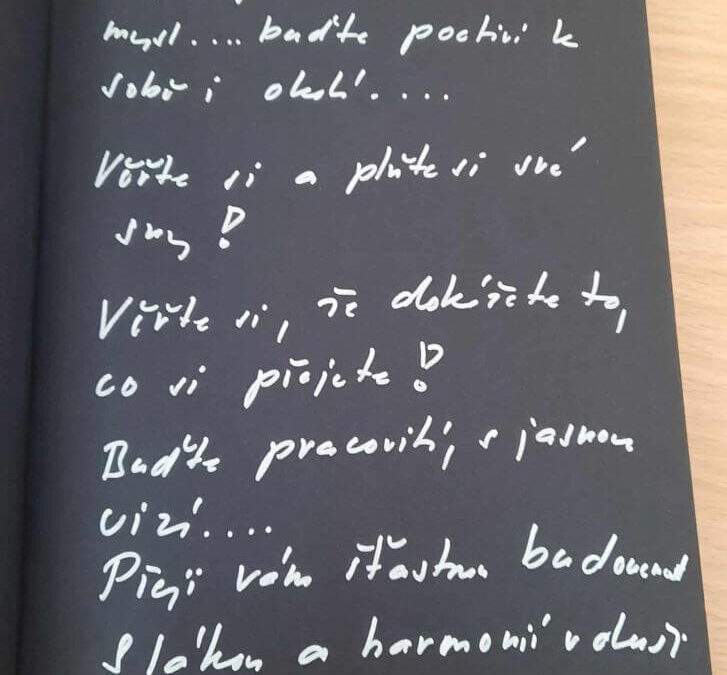 mysl.... buďte poctiví k
sobě i okolí....
Věřte si a plňte si své
sny!
Věřte si, že dokážete to,
co si přejete!
Buďte pracovití, s jasnou
vizí....
Přeji vám šťastnou budoucnost
s láskou a harmonií v duši.